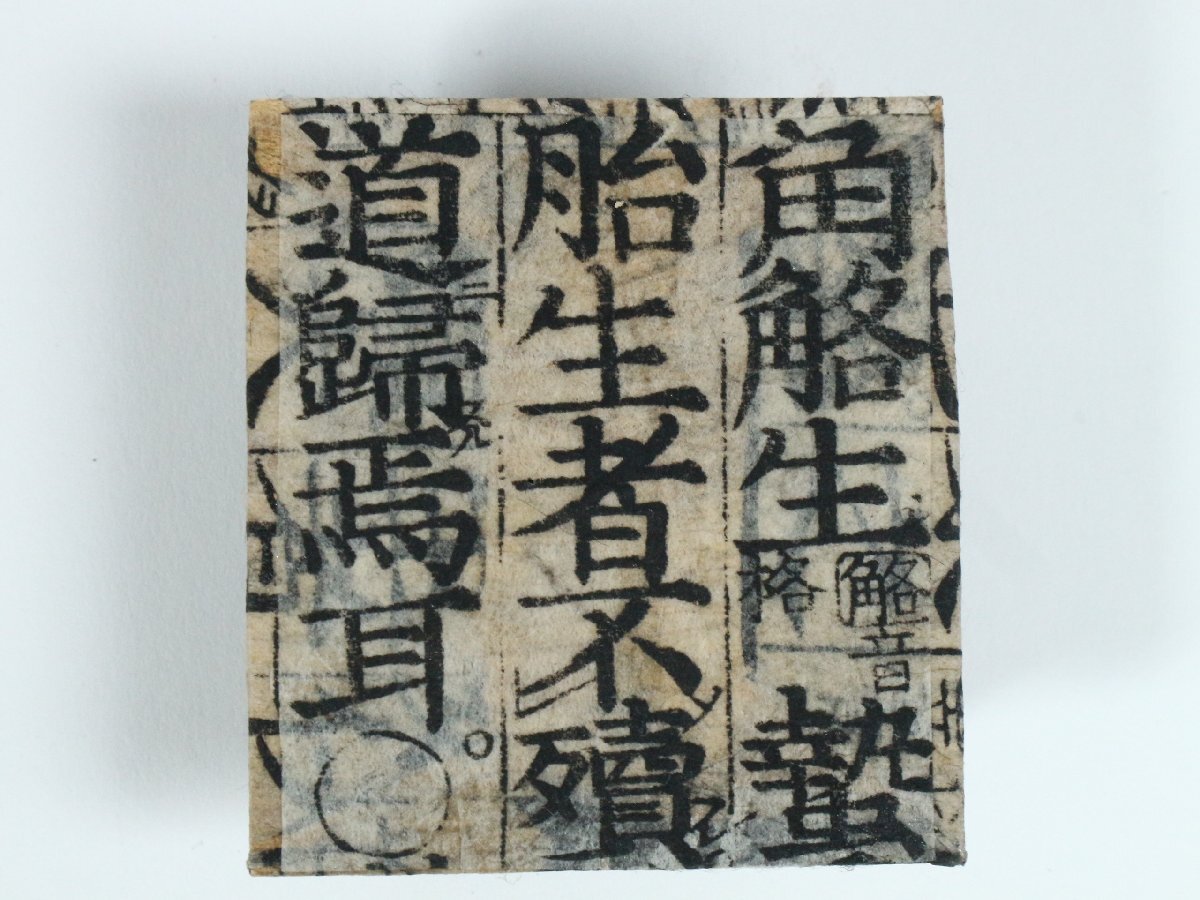 角觡生
觡音
格
蟄
胎生者不殰
道歸焉耳。○